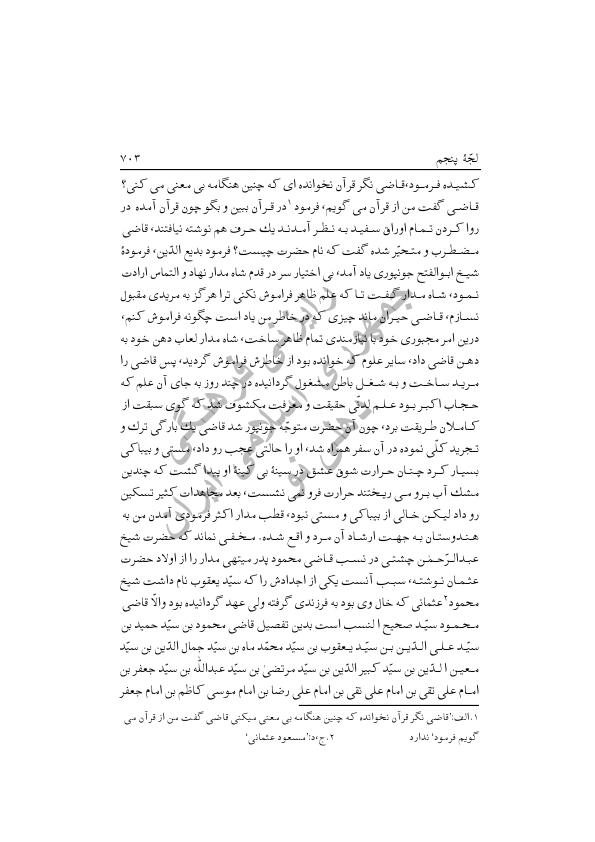 لجّهٔ پنجم ۷۰۳
کشیده فرمود، قاضی نگر قرآن نخوانده ای که چنین هنگامه بی معنی می کنی؟
قاضی گفت من از قرآن می گویم، فرمود۱ در قرآن ببین و بگو چون قرآن آمده در
روا کردن تمام اوراق سفید به نظر آمدند یك حرف هم نوشته نیافتند، قاضی
مضطرب و متحیّر شده گفت که نام حضرت چیست؟ فرمود بدیع الدّین، فرمودهٔ
شیخ ابوالفتح جونپوری یاد آمد، بی اختیار سر در قدم شاه مدار نهاد و التماس ارادت
نمود، شاه مدار گفت تا که علم ظاهر فراموش نکنی ترا هرگز به مریدی مقبول
نسازم، قاضی حیران ماند چیزی که در خاطر من یاد است چگونه فراموش کنم،
درین امر مجبوری خود با نیازمندی تمام ظاهر ساخت، شاه مدار لعاب دهن خود به
دهن قاضی داد، سایر علوم که خوانده بود از خاطرش فراموش گردید، پس قاضی را
مرید ساخت و به شغل باطن مشغول گردانیده در چند روز به جای آن علم که
حجاب اکبر بود علم لدنّی حقیقت و معرفت مکشوف شد که گوی سبقت از
کاملان طریقت برد، چون آن حضرت متوجّه جونپور شد قاضی یك بارگی ترك و
تجرید کلّی نموده در آن سفر همراه شد، او را حالتی عجب رو داد، مستی و بیباکی
بسیار کرد چنان حرارت شوق عشق در سینهٔ بی کینهٔ او پیدا گشت که چندین
مشك آب برو می ریختند حرارت فرو نمی نشست، بعد مجاهدات کثیر تسکین
رو داد لیکن خالی از بیباکی و مستی نبود، قطب مدار اکثر فرمودی آمدن من به
هندوستان به جهت ارشاد آن مرد واقع شده. مخفی نماند که حضرت شیخ
عبدالرّحمٰن چشتی در نسب قاضی محمود پدر میتهی مدار را از اولاد حضرت
عثمان نوشته، سبب آنست یکی از اجدادش را که سیّد یعقوب نام داشت شیخ
محمود۲ عثمانی که خال وی بود به فرزندی گرفته ولی عهد گردانیده بود والّا قاضی
محمود سیّد صحیح النسب است بدین تفصیل قاضی محمود بن سیّد حمید بن
سیّد علی الدّین بن سیّد یعقوب بن سیّد محمّد ماه بن سیّد جمال الدّین بن سیّد
معین الدّین بن سیّد کبیر الدّین بن سیّد مرتضیٰ بن سیّد عبدالله بن سیّد جعفر بن
امام علی تقی بن امام علی نقی بن امام علی رضا بن امام موسی کاظم بن امام جعفر
۱. الف: 'قاضی نگر قرآن نخوانده که چنین هنگامه بی معنی میکنی قاضی گفت من از قرآن می
گویم فرمود' ندارد ۲. ج، د: 'مسعود عثمانی'
رایزنی فرهنگی
جمهوری اسلامی ایران
دهلی نو